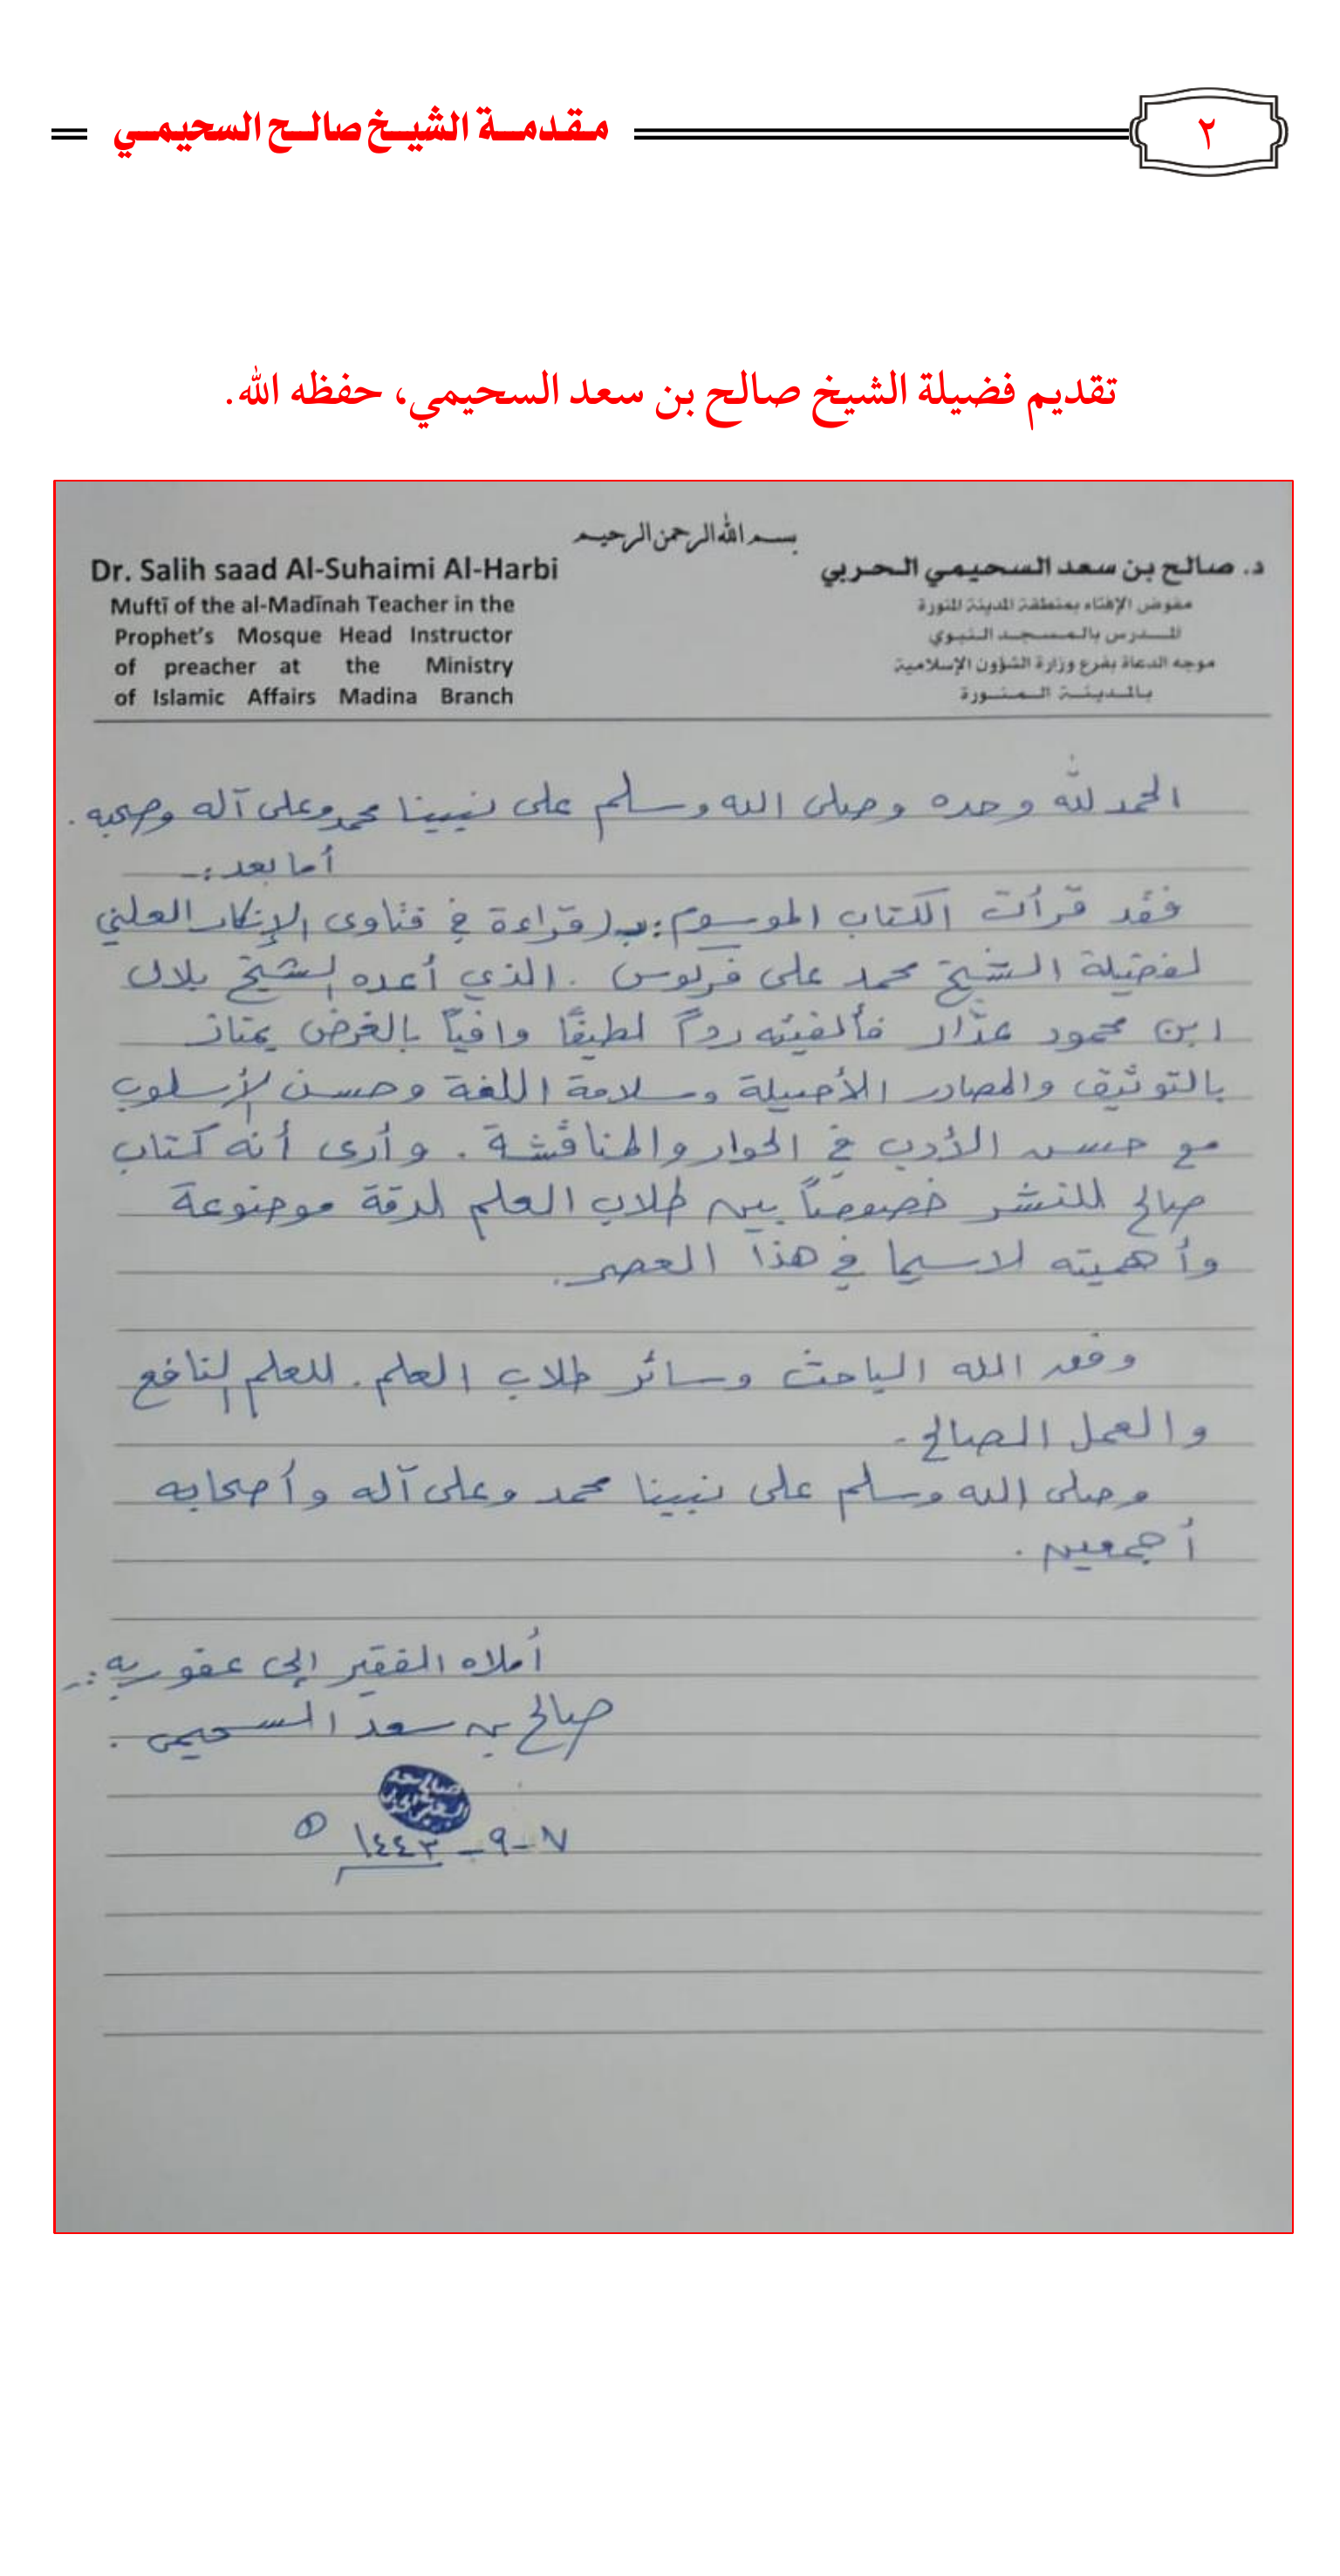 ٢
مقدمة الشيخ صالح السحيمي
تقديم فضيلة الشيخ صالح بن سعد السحيمي، حفظه الله.
بسم الله الرحمن الرحيم
د. صالح بن سعد السحيمي الحربي
مفوض الإفتاء بمنطقة المدينة المنورة
المدرس بالمسجد النبوي
موجه الدعاة بفرع وزارة الشؤون الإسلامية
بالمدينة المنورة
Dr. Salih saad Al-Suhaimi Al-Harbi
Muftī of the al-Madīnah Teacher in the
Prophet's Mosque Head Instructor
of preacher at the Ministry
of Islamic Affairs Madina Branch
الحمد لله وحده وصلى الله وسلم على نبينا محمد وعلى آله وصحبه.
أما بعد :ـ
فقد قرأت الكتاب الموسوم: بـ(قراءة في فتاوى الإنكار العلني
لفضيلة الشيخ محمد علي فركوس . الذي أعده الشيخ بلال
ابن محمود عدّار فألفيته رداً لطيفًا وافيًا بالغرض يمتاز
بالتوثيق والمصادر الأصيلة وسلامة اللغة وحسن الأسلوب
مع حسن الأدب في الحوار والمناقشة . وأرى أنه كتاب
صالح للنشر خصوصاً بين طلاب العلم لدقة موضوعة
وأهميته لاسيما في هذا العصر.
وفق الله الباحث وسائر طلاب العلم . للعلم النافع
والعمل الصالح .
وصلى الله وسلم على نبينا محمد وعلى آله وأصحابه
أجمعين .
أملاه الفقير إلى عفو ربه :ـ
صالح بن سعد السحيمي .
٧-٩-١٤٤٣ هـ